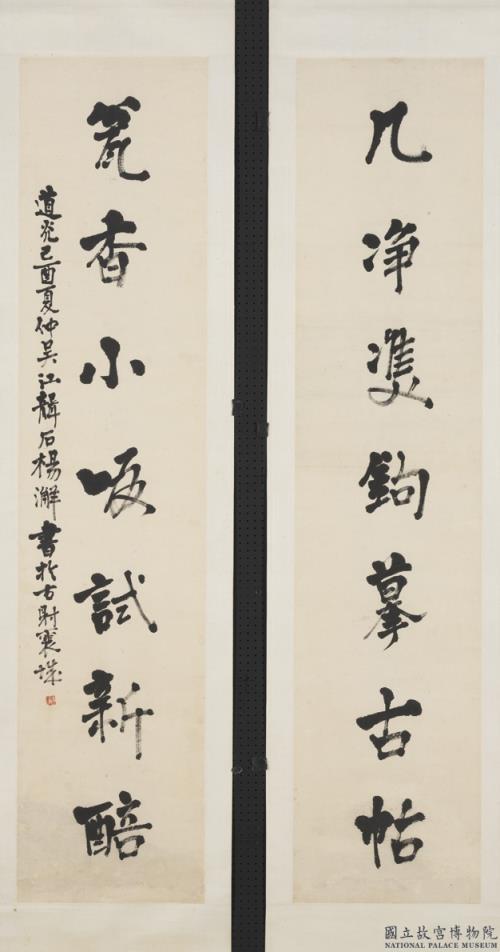 几净雙鉤摹古帖
瓮香小啜試新醅
道光己酉夏仲吳江聾石楊澥書於古射襄城
國立故宮博物院
NATIONAL PALACE MUSEUM